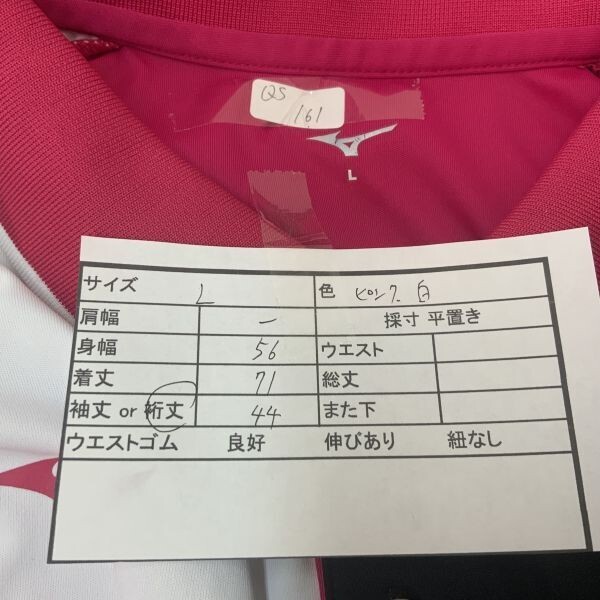 QS
161
L
サイズ L 色 ピンク 白
肩幅 ー 採寸 平置き
身幅 56 ウエスト
着丈 71 総丈
袖丈 or 裄丈 44 また下
ウエストゴム 良好 伸びあり 紐なし